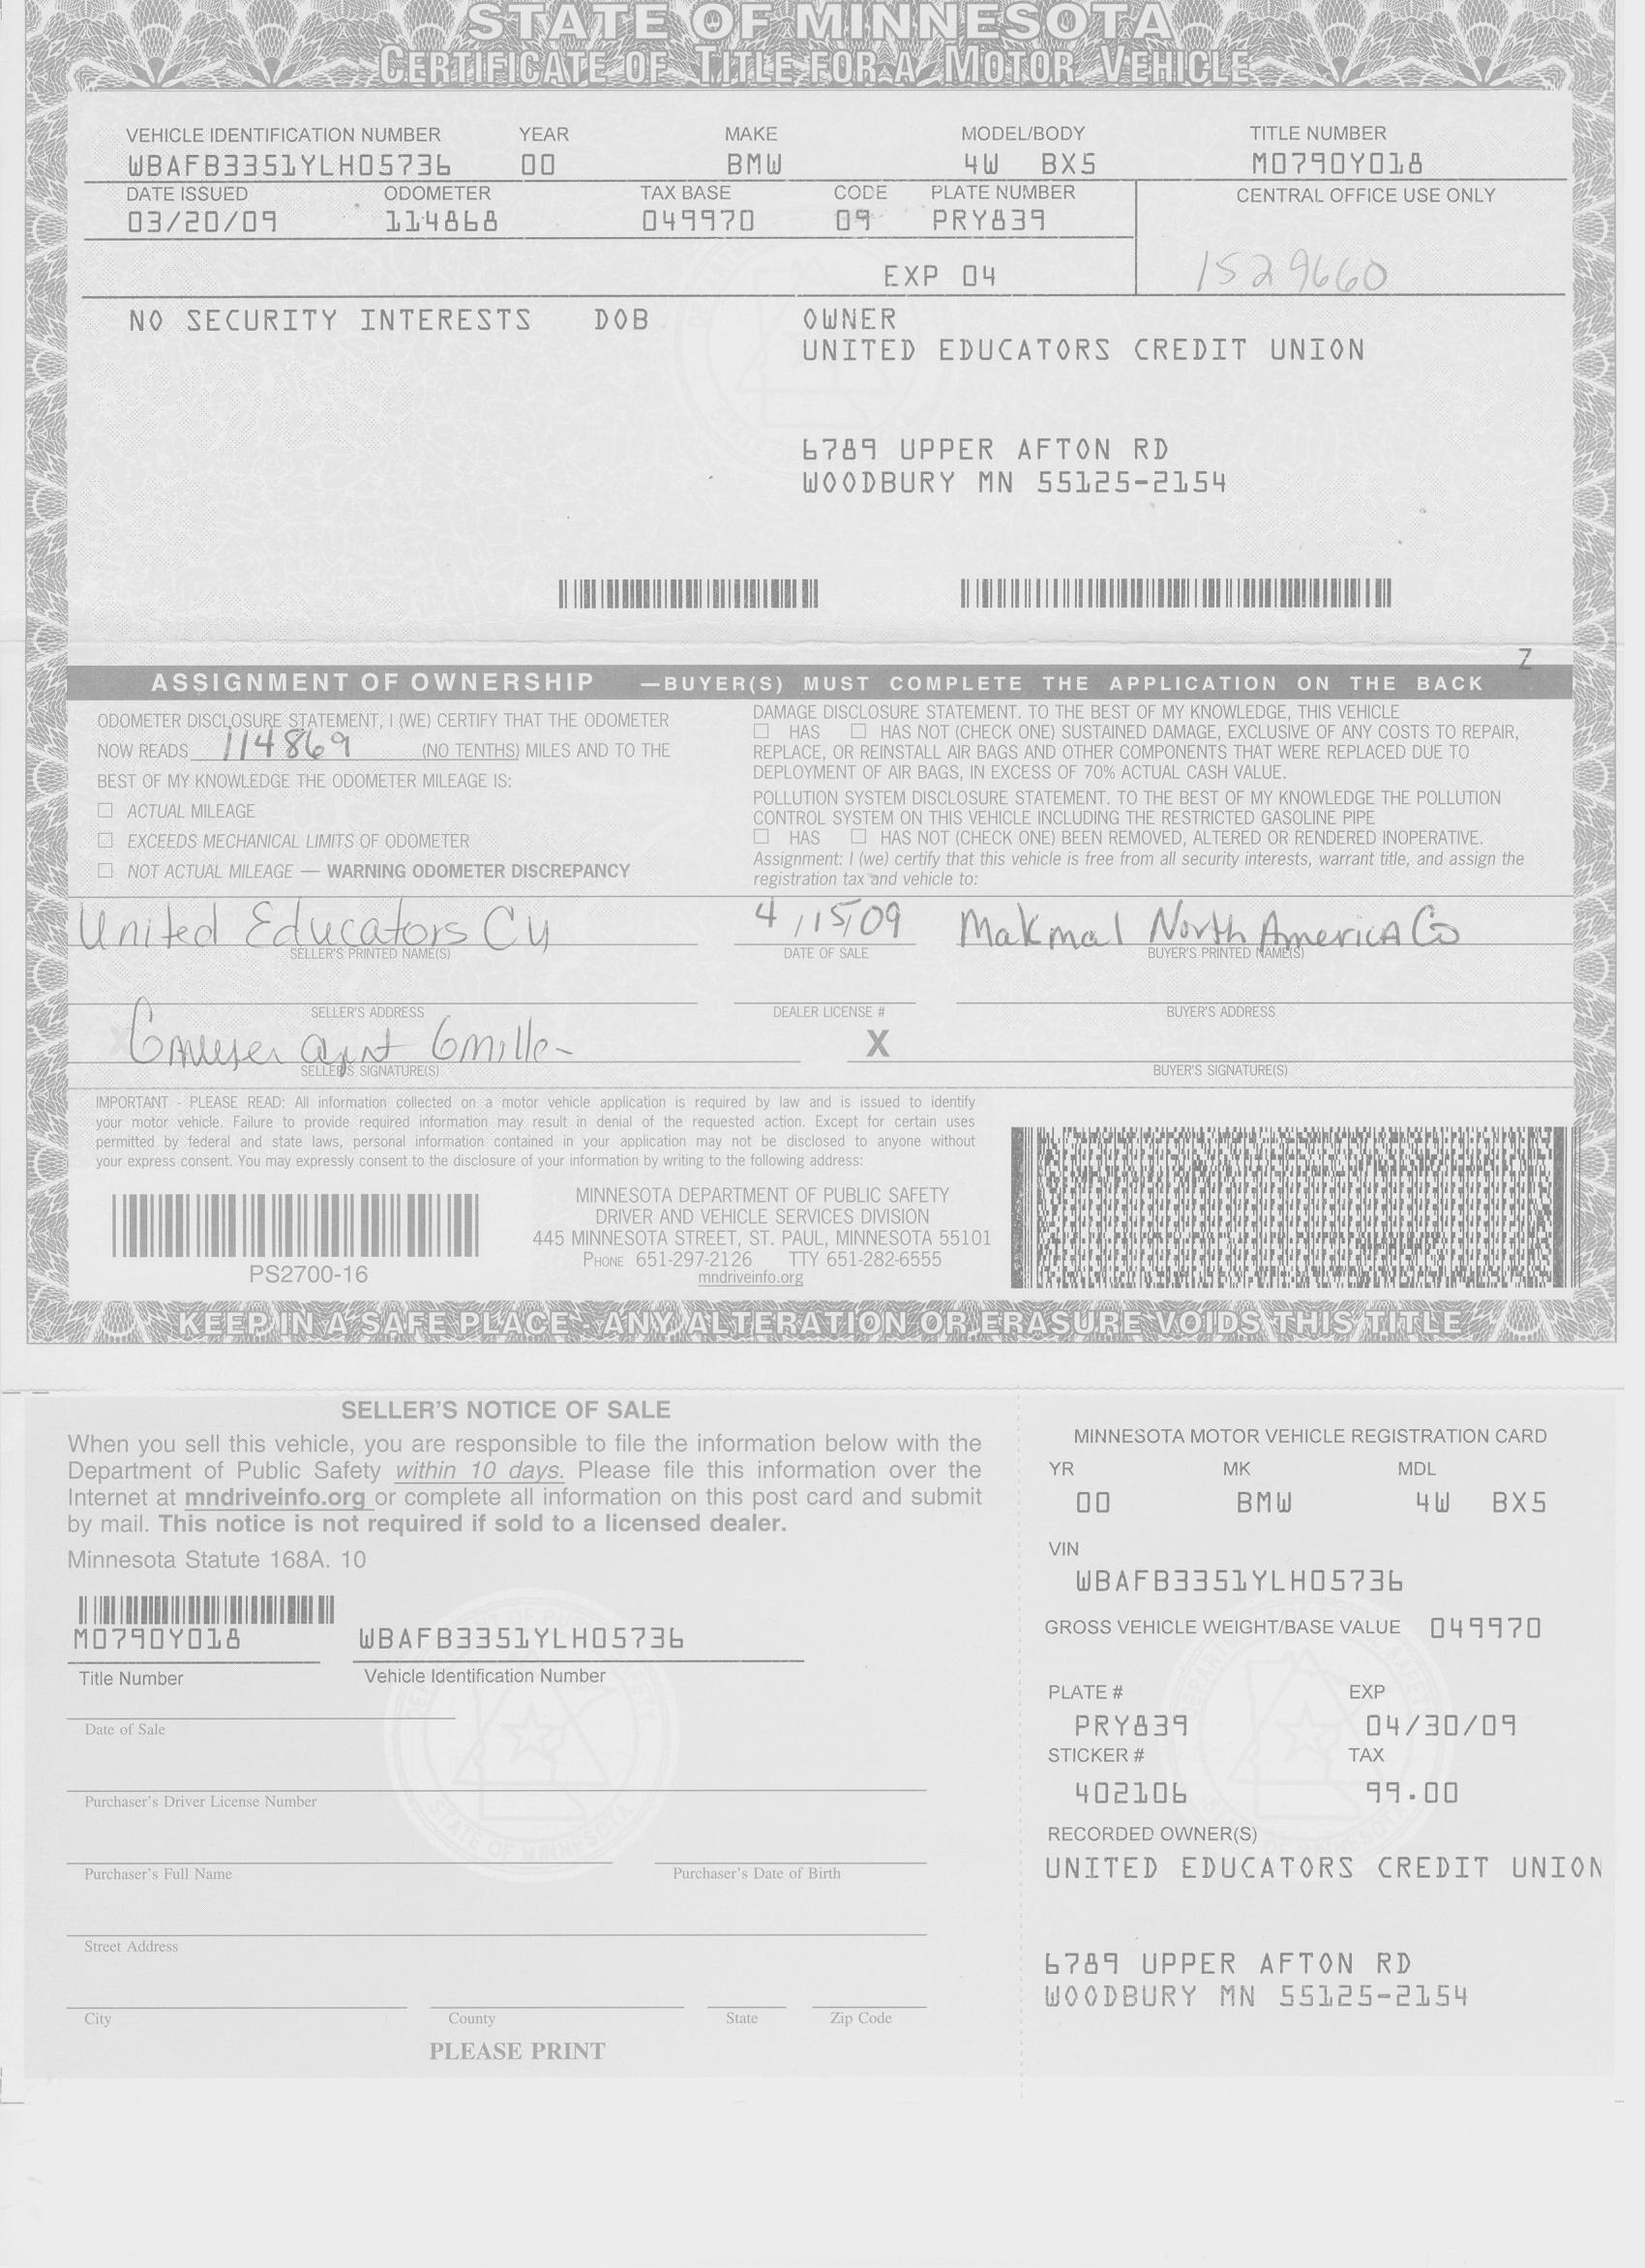 STATE OF MINNESOTA
CERTIFICATE OF TITLE FOR A MOTOR VEHICLE
VEHICLE IDENTIFICATION NUMBER YEAR MAKE MODEL/BODY TITLE NUMBER
WBAFB3351YLH05736 00 BMW 4W BX5 M0790Y018
DATE ISSUED ODOMETER TAX BASE CODE PLATE NUMBER CENTRAL OFFICE USE ONLY
03/20/09 114868 049970 09 PRY839
EXP 04 1529660
NO SECURITY INTERESTS DOB OWNER
UNITED EDUCATORS CREDIT UNION
6789 UPPER AFTON RD
WOODBURY MN 55125-2154
Z
ASSIGNMENT OF OWNERSHIP —BUYER(S) MUST COMPLETE THE APPLICATION ON THE BACK
ODOMETER DISCLOSURE STATEMENT, I (WE) CERTIFY THAT THE ODOMETER
NOW READS 114869 (NO TENTHS) MILES AND TO THE
BEST OF MY KNOWLEDGE THE ODOMETER MILEAGE IS:
☐ ACTUAL MILEAGE
☐ EXCEEDS MECHANICAL LIMITS OF ODOMETER
☐ NOT ACTUAL MILEAGE — WARNING ODOMETER DISCREPANCY
DAMAGE DISCLOSURE STATEMENT. TO THE BEST OF MY KNOWLEDGE, THIS VEHICLE
☐ HAS ☐ HAS NOT (CHECK ONE) SUSTAINED DAMAGE, EXCLUSIVE OF ANY COSTS TO REPAIR,
REPLACE, OR REINSTALL AIR BAGS AND OTHER COMPONENTS THAT WERE REPLACED DUE TO
DEPLOYMENT OF AIR BAGS, IN EXCESS OF 70% ACTUAL CASH VALUE.
POLLUTION SYSTEM DISCLOSURE STATEMENT. TO THE BEST OF MY KNOWLEDGE THE POLLUTION
CONTROL SYSTEM ON THIS VEHICLE INCLUDING THE RESTRICTED GASOLINE PIPE
☐ HAS ☐ HAS NOT (CHECK ONE) BEEN REMOVED, ALTERED OR RENDERED INOPERATIVE.
Assignment: I (we) certify that this vehicle is free from all security interests, warrant title, and assign the
registration tax and vehicle to:
United Educators CU 4/15/09 Makmal North America Co
SELLER'S PRINTED NAME(S) DATE OF SALE BUYER'S PRINTED NAME(S)
SELLER'S ADDRESS DEALER LICENSE # BUYER'S ADDRESS
X X
SELLER'S SIGNATURE(S) BUYER'S SIGNATURE(S)
IMPORTANT - PLEASE READ: All information collected on a motor vehicle application is required by law and is issued to identify
your motor vehicle. Failure to provide required information may result in denial of the requested action. Except for certain uses
permitted by federal and state laws, personal information contained in your application may not be disclosed to anyone without
your express consent. You may expressly consent to the disclosure of your information by writing to the following address:
MINNESOTA DEPARTMENT OF PUBLIC SAFETY
DRIVER AND VEHICLE SERVICES DIVISION
445 MINNESOTA STREET, ST. PAUL, MINNESOTA 55101
PHONE 651-297-2126 TTY 651-282-6555
mndriveinfo.org
PS2700-16
KEEP IN A SAFE PLACE - ANY ALTERATION OR ERASURE VOIDS THIS TITLE
SELLER'S NOTICE OF SALE
When you sell this vehicle, you are responsible to file the information below with the
Department of Public Safety within 10 days. Please file this information over the
Internet at mndriveinfo.org or complete all information on this post card and submit
by mail. This notice is not required if sold to a licensed dealer.
Minnesota Statute 168A. 10
M0790Y018 WBAFB3351YLH05736
Title Number Vehicle Identification Number
Date of Sale
Purchaser's Driver License Number
Purchaser's Full Name Purchaser's Date of Birth
Street Address
City County State Zip Code
PLEASE PRINT
MINNESOTA MOTOR VEHICLE REGISTRATION CARD
YR MK MDL
00 BMW 4W BX5
VIN
WBAFB3351YLH05736
GROSS VEHICLE WEIGHT/BASE VALUE 049970
PLATE # EXP
PRY839 04/30/09
STICKER # TAX
402106 99.00
RECORDED OWNER(S)
UNITED EDUCATORS CREDIT UNION
6789 UPPER AFTON RD
WOODBURY MN 55125-2154